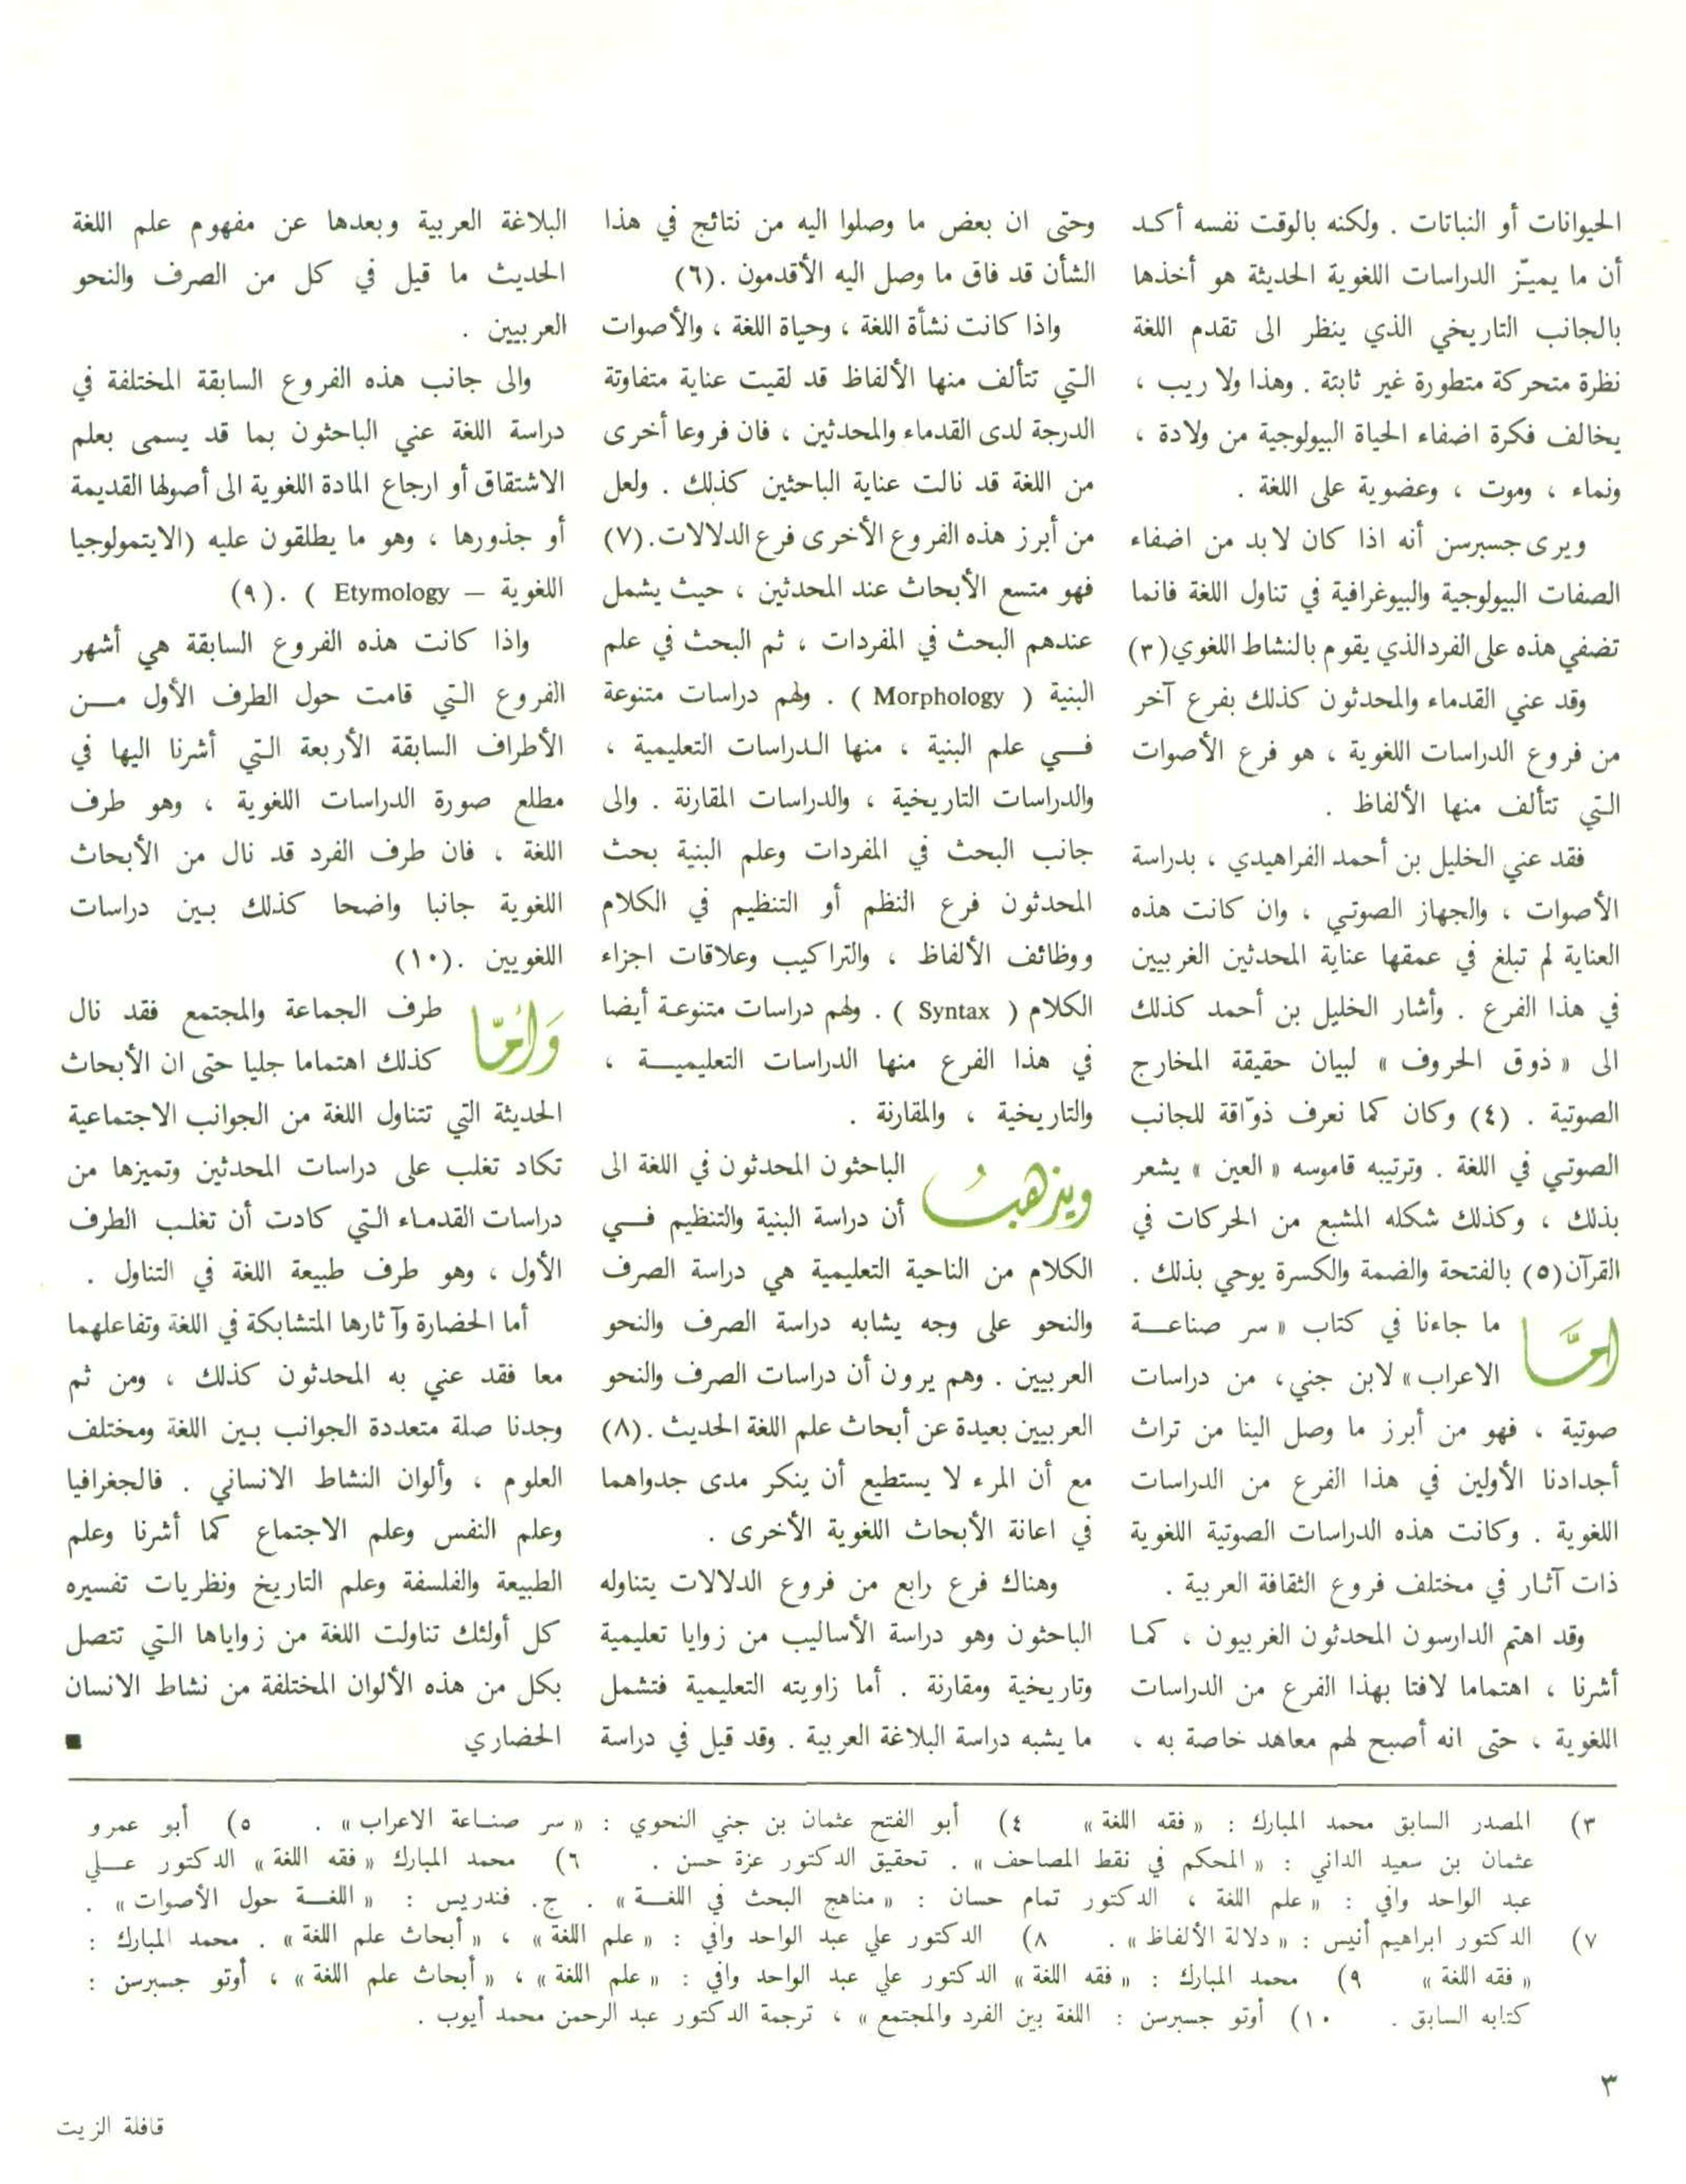 الحيوانات أو النباتات . ولكنه بالوقت نفسه أكد
أن ما يميّز الدراسات اللغوية الحديثة هو أخذها
بالجانب التاريخي الذي ينظر الى تقدم اللغة
نظرة متحركة متطورة غير ثابتة . وهذا ولا ريب ،
يخالف فكرة اضفاء الحياة البيولوجية من ولادة ،
ونماء ، وموت ، وعضوية على اللغة .
ويرى جسبرسن أنه اذا كان لابد من اضفاء
الصفات البيولوجية والبيوغرافية في تناول اللغة فانما
تضفي هذه على الفرد الذي يقوم بالنشاط اللغوي(٣)
وقد عني القدماء والمحدثون كذلك بفرع آخر
من فروع الدراسات اللغوية ، هو فرع الأصوات
التي تتألف منها الألفاظ .
فقد عني الخليل بن أحمد الفراهيدي ، بدراسة
الأصوات ، والجهاز الصوتي ، وان كانت هذه
العناية لم تبلغ في عمقها عناية المحدثين الغربيين
في هذا الفرع . وأشار الخليل بن أحمد كذلك
الى « ذوق الحروف » لبيان حقيقة المخارج
الصوتية . (٤) وكان كما نعرف ذوّاقة للجانب
الصوتي في اللغة . وترتيبه قاموسه « العين » يشعر
بذلك ، وكذلك شكله المشبع من الحركات في
القرآن(٥) بالفتحة والضمة والكسرة يوحي بذلك .
امّا ما جاءنا في كتاب « سر صناعة
الاعراب» لابن جني، من دراسات
صوتية ، فهو من أبرز ما وصل الينا من تراث
أجدادنا الأولين في هذا الفرع من الدراسات
اللغوية . وكانت هذه الدراسات الصوتية اللغوية
ذات آثار في مختلف فروع الثقافة العربية .
وقد اهتم الدارسون المحدثون الغربيون ، كما
أشرنا ، اهتماما لافتا بهذا الفرع من الدراسات
اللغوية ، حتى انه أصبح لهم معاهد خاصة به ،
وحتى ان بعض ما وصلوا اليه من نتائج في هذا
الشأن قد فاق ما وصل اليه الأقدمون .(٦)
واذا كانت نشأة اللغة ، وحياة اللغة ، والأصوات
التي تتألف منها الألفاظ قد لقيت عناية متفاوتة
الدرجة لدى القدماء والمحدثين ، فان فروعا أخرى
من اللغة قد نالت عناية الباحثين كذلك . ولعل
من أبرز هذه الفروع الأخرى فرع الدلالات.(٧)
فهو متسع الأبحاث عند المحدثين ، حيث يشمل
عندهم البحث في المفردات ، ثم البحث في علم
البنية ( Morphology ) . ولهم دراسات متنوعة
في علم البنية ، منها الدراسات التعليمية ،
والدراسات التاريخية ، والدراسات المقارنة . والى
جانب البحث في المفردات وعلم البنية بحث
المحدثون فرع النظم أو التنظيم في الكلام
ووظائف الألفاظ ، والتراكيب وعلاقات اجزاء
الكلام ( Syntax ) . ولهم دراسات متنوعة أيضا
في هذا الفرع منها الدراسات التعليمية ،
والتاريخية ، والمقارنة .
ويذهبُ الباحثون المحدثون في اللغة الى
أن دراسة البنية والتنظيم في
الكلام من الناحية التعليمية هي دراسة الصرف
والنحو على وجه يشابه دراسة الصرف والنحو
العربيين . وهم يرون أن دراسات الصرف والنحو
العربيين بعيدة عن أبحاث علم اللغة الحديث .(٨)
مع أن المرء لا يستطيع أن ينكر مدى جدواهما
في اعانة الأبحاث اللغوية الأخرى .
وهناك فرع رابع من فروع الدلالات يتناوله
الباحثون وهو دراسة الأساليب من زوايا تعليمية
وتاريخية ومقارنة . أما زاويته التعليمية فتشمل
ما يشبه دراسة البلاغة العربية . وقد قيل في دراسة
البلاغة العربية وبعدها عن مفهوم علم اللغة
الحديث ما قيل في كل من الصرف والنحو
العربيين .
والى جانب هذه الفروع السابقة المختلفة في
دراسة اللغة عني الباحثون بما قد يسمى بعلم
الاشتقاق أو ارجاع المادة اللغوية الى أصولها القديمة
أو جذورها ، وهو ما يطلقون عليه (الايتمولوجيا
اللغوية — Etymology ) .(٩)
واذا كانت هذه الفروع السابقة هي أشهر
الفروع التي قامت حول الطرف الأول من
الأطراف السابقة الأربعة التي أشرنا اليها في
مطلع صورة الدراسات اللغوية ، وهو طرف
اللغة ، فان طرف الفرد قد نال من الأبحاث
اللغوية جانبا واضحا كذلك بين دراسات
اللغويين .(١٠)
وَأمّا طرف الجماعة والمجتمع فقد نال
كذلك اهتماما جليا حتى ان الأبحاث
الحديثة التي تتناول اللغة من الجوانب الاجتماعية
تكاد تغلب على دراسات المحدثين وتميزها من
دراسات القدماء التي كادت أن تغلب الطرف
الأول ، وهو طرف طبيعة اللغة في التناول .
أما الحضارة وآثارها المتشابكة في اللغة وتفاعلهما
معا فقد عني به المحدثون كذلك ، ومن ثم
وجدنا صلة متعددة الجوانب بين اللغة ومختلف
العلوم ، وألوان النشاط الانساني . فالجغرافيا
وعلم النفس وعلم الاجتماع كما أشرنا وعلم
الطبيعة والفلسفة وعلم التاريخ ونظريات تفسيره
كل أولئك تناولت اللغة من زواياها التي تتصل
بكل من هذه الألوان المختلفة من نشاط الانسان
الحضاري ■
٣) المصدر السابق محمد المبارك : « فقه اللغة » ٤) أبو الفتح عثمان بن جني النحوي : « سر صناعة الاعراب » . ٥) أبو عمرو
عثمان بن سعيد الداني : « المحكم في نقط المصاحف » . تحقيق الدكتور عزة حسن . ٦) محمد المبارك « فقه اللغة » الدكتور علي
عبد الواحد وافي : « علم اللغة ، الدكتور تمام حسان : « مناهج البحث في اللغة » . ج. فندريس : « اللغة حول الأصوات » .
٧) الدكتور ابراهيم أنيس : « دلالة الألفاظ » . ٨) الدكتور علي عبد الواحد وافي : « علم اللغة » ، « أبحاث علم اللغة » . محمد المبارك :
« فقه اللغة » ٩) محمد المبارك : « فقه اللغة » الدكتور علي عبد الواحد وافي : « علم اللغة » ، « أبحاث علم اللغة » ، أوتو جسبرسن :
كتابه السابق . ١٠) أوتو جسبرسن : اللغة بين الفرد والمجتمع » ، ترجمة الدكتور عبد الرحمن محمد أيوب .
٣
قافلة الزيت